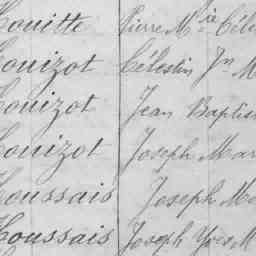 Houitte Pierre M.ie Céle
Houizot Célestin Jn M
Houizot Jean Baptis
Houizot Joseph Mar
Houssais Joseph Ma
Houssais Joseph Yves M